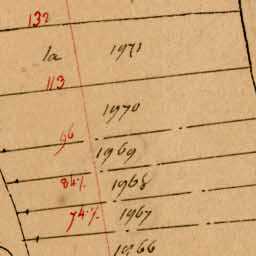 132
1a 1971
113
1970
96
1969
84½
1968
74½
1967
1966